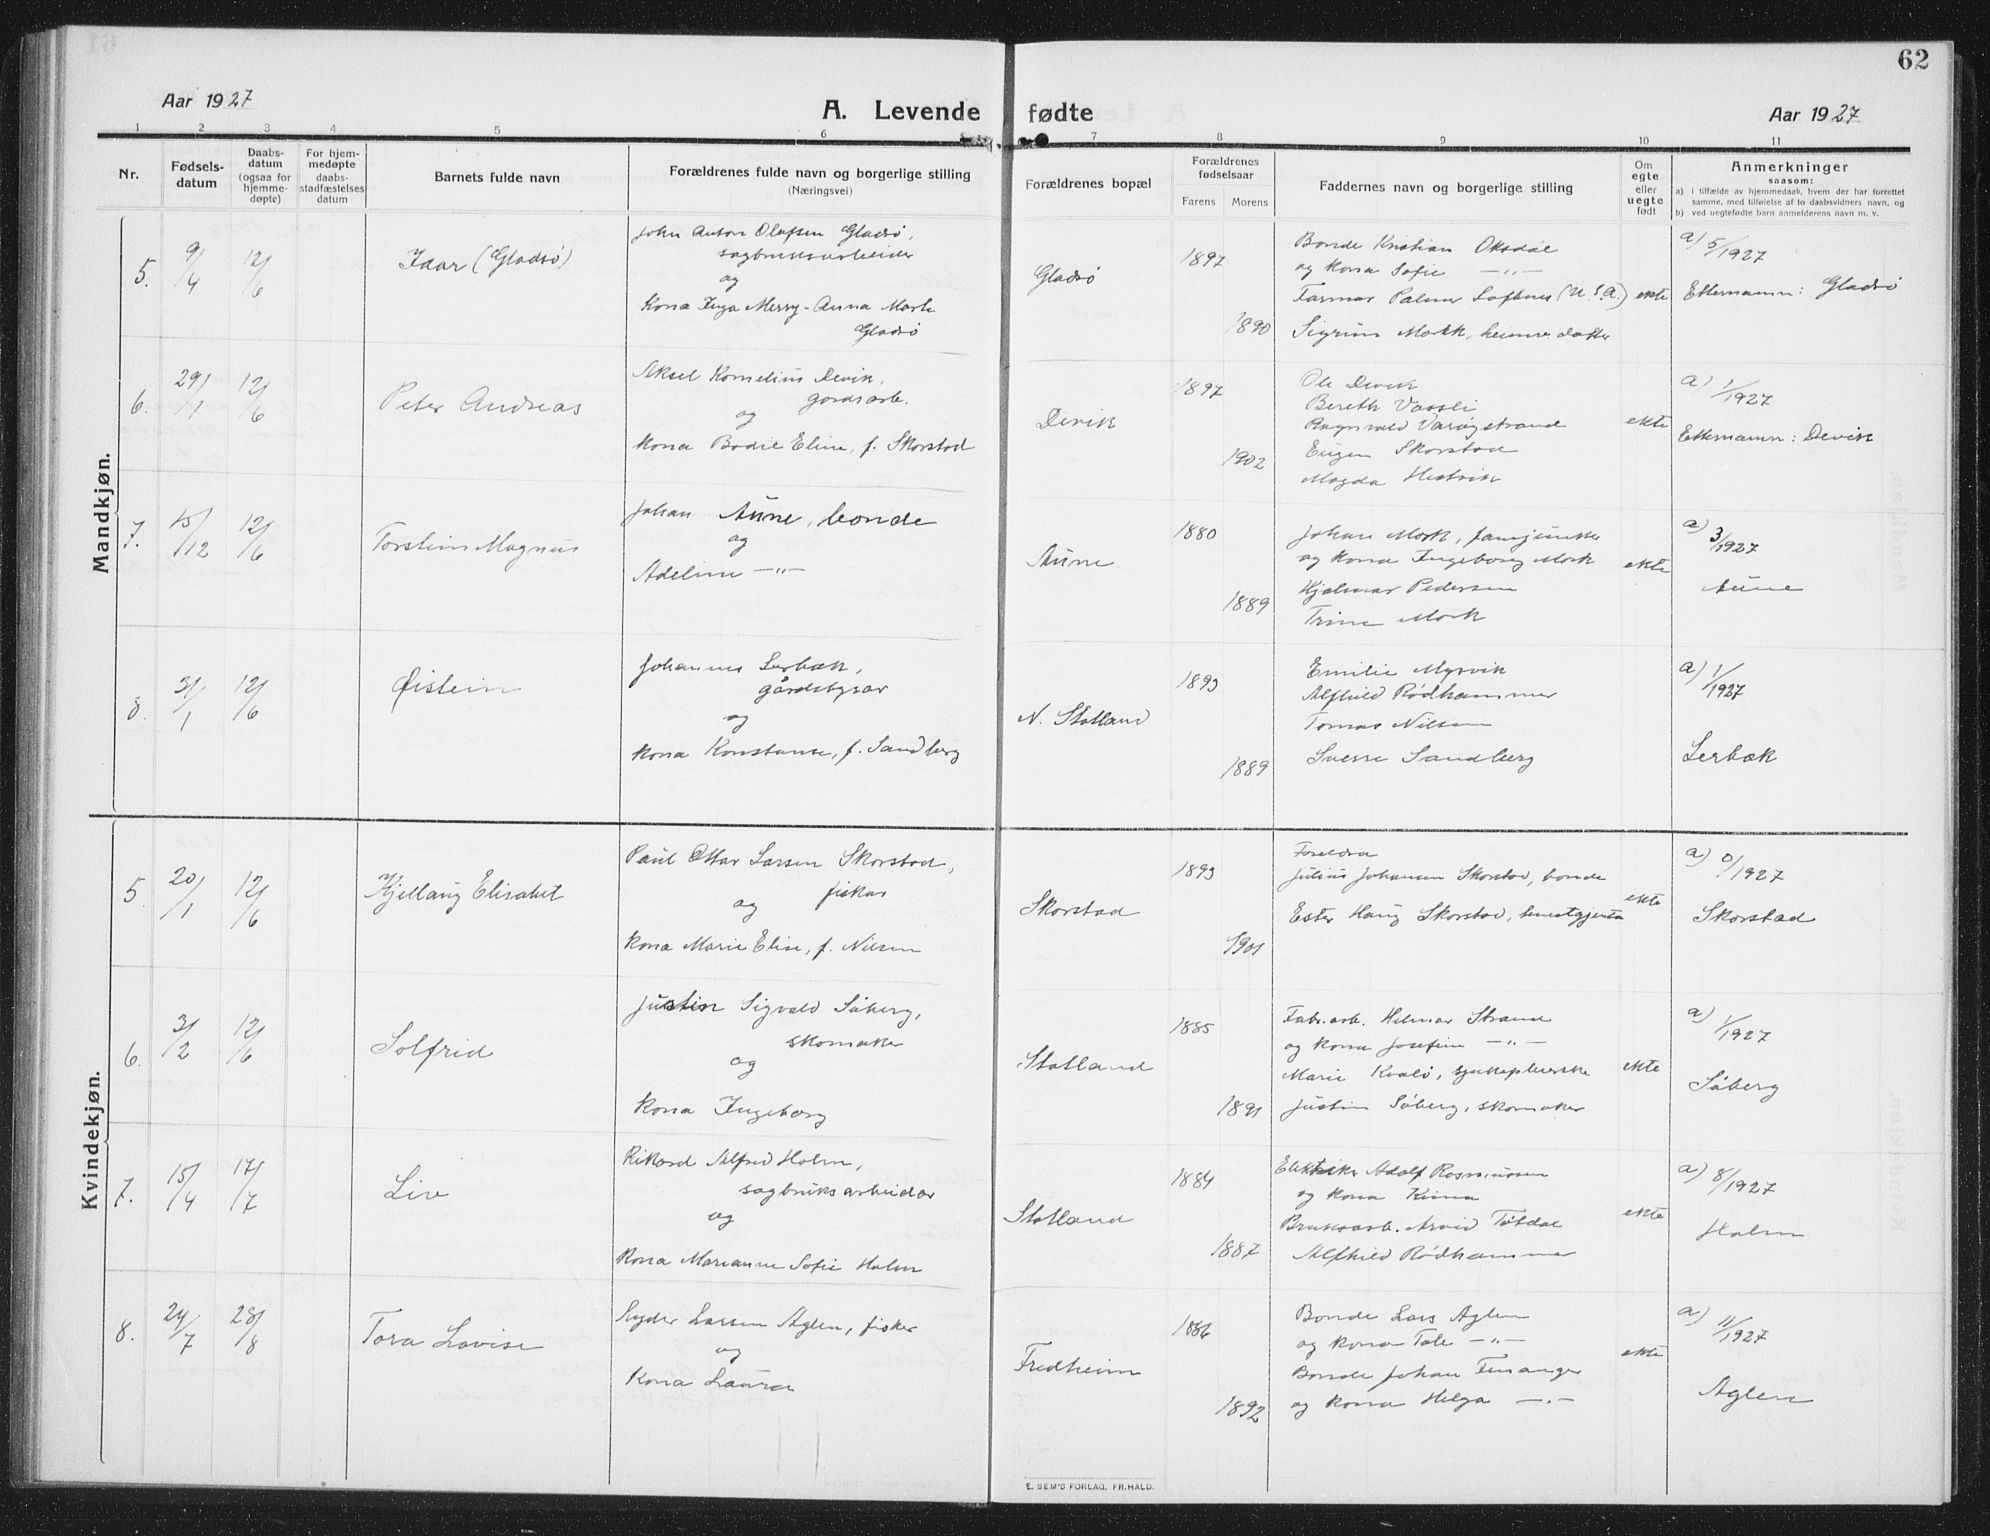 62
Aar 1927
A. Levende fødte
Aar 1927
1 2 3 4 5 6 7 8 9 10 11
Nr.
Fødsels-
datum
Daabs-
datum
(ogsaa for
hjemme-
døpte)
For hjem-
medøpte
daabs-
stadfæstelses
datum
Barnets fulde navn
Forældrenes fulde navn og borgerlige stilling
(Næringsvei)
Forældrenes bopæl
Forældrenes
fødselsaar
Farens Morens
Faddernes navn og borgerlige stilling
Om
egte
eller
uegte
født
Anmerkninger
saasom:
a) i tilfælde av hjemmedaab, hvem der har forrettet
samme, med tilføielse av to daabsvidners navn, og
b) ved uegtefødte barn anmelderens navn m. v.
Mandkjøn.
5. 9/4 12/6
Idar (Gladsø)
John Anton Olafsen Gladsø,
sagbruksarbeider
og
Kona Inga Merry-Anna Mork
Gladsø
Gladsø
1897
1890
Bonde Kristian Oksdøl
og kona Sofie —"—
Farmar Palmer Loftnes (U.S.A.)
Sigrun Mork, heimedotter
ekte
a) 5/1927
Etternamn: Gladsø
6. 29/1 12/6
Peter Andreas
Aksel Kornelius Devik,
gardsarb.
og
kona Bodil Eline, f. Skorstad
Devik
1897
1902
Ole Devik
Bereth Vassli
Ragnvald Varøystrand
Eugen Skorstad
Magda Hestvik
ekte
a) 1/1927
Etternamn: Devik
7. 15/12 12/6
Torstein Magnus
Johan Aune, bonde
og
Adeline —"—
Aune
1880
1889
Johan Mork,
og kona Ingeborg Mork
Hjalmar Pedersen
Trine Mork
ekte
a) 3/1927
Aune
8. 31/1 12/6
Øistein
Johannes Lerbæk,
gårdstyrar
og
kona Konstanse, f. Sandberg
N. Statland
1893
1889
Emilie Myrvik
Alfhild Rødhammer
Tomas Nilsen
Sverre Sandberg
a) 1/1927
Lerbæk
Kvindekjøn.
5 20/1 12/6
Kjellaug Elisabet
Paul Ottar Larsen Skorstad,
fiskar
og
kona Marie Elise, f. Nilsen
Skorstad
1893
1901
Foreldra
Julius Johansen Skorstad, bonde
Ester Haug Skorstad, tenestgjenta
ekte
a) 0/1927
Skorstad
6. 3/2 12/6
Solfrid
Justin Sigvald Søberg,
skomaker
og
kona Ingeborg
Statland
1885
1891
Fabr.arb. Helmar Strand
og kona Josefine —"—
Marie Kvalø, sjukepleierske
Justin Søberg, skomaker
ekte
a) 1/1927
Søberg
7. 15/4 17/7
Liv
Rikard Alfred Holm,
sagbruksarbeidar
og
Kona Marianne Sofie Holm
Statland
1884
1887
Elektriker Adolf Rasmussen
og kona
Bruksarb. Arvid Tøtdal
Alfhild Rødhammer
ekte
a) 8/1927
Holm
8. 24/7 28/8
Tora Lovise
Syder Larsen Aglen, fisker
og
Kona Laura
Fredheim
1886
1892
Bonde Lars Aglen
og kona Tale —"—
Bonde Johan Finanger
og kona Helga —"—
ekte
a) 11/1927
Aglen
E. SEM'S FORLAG. FR.HALD.